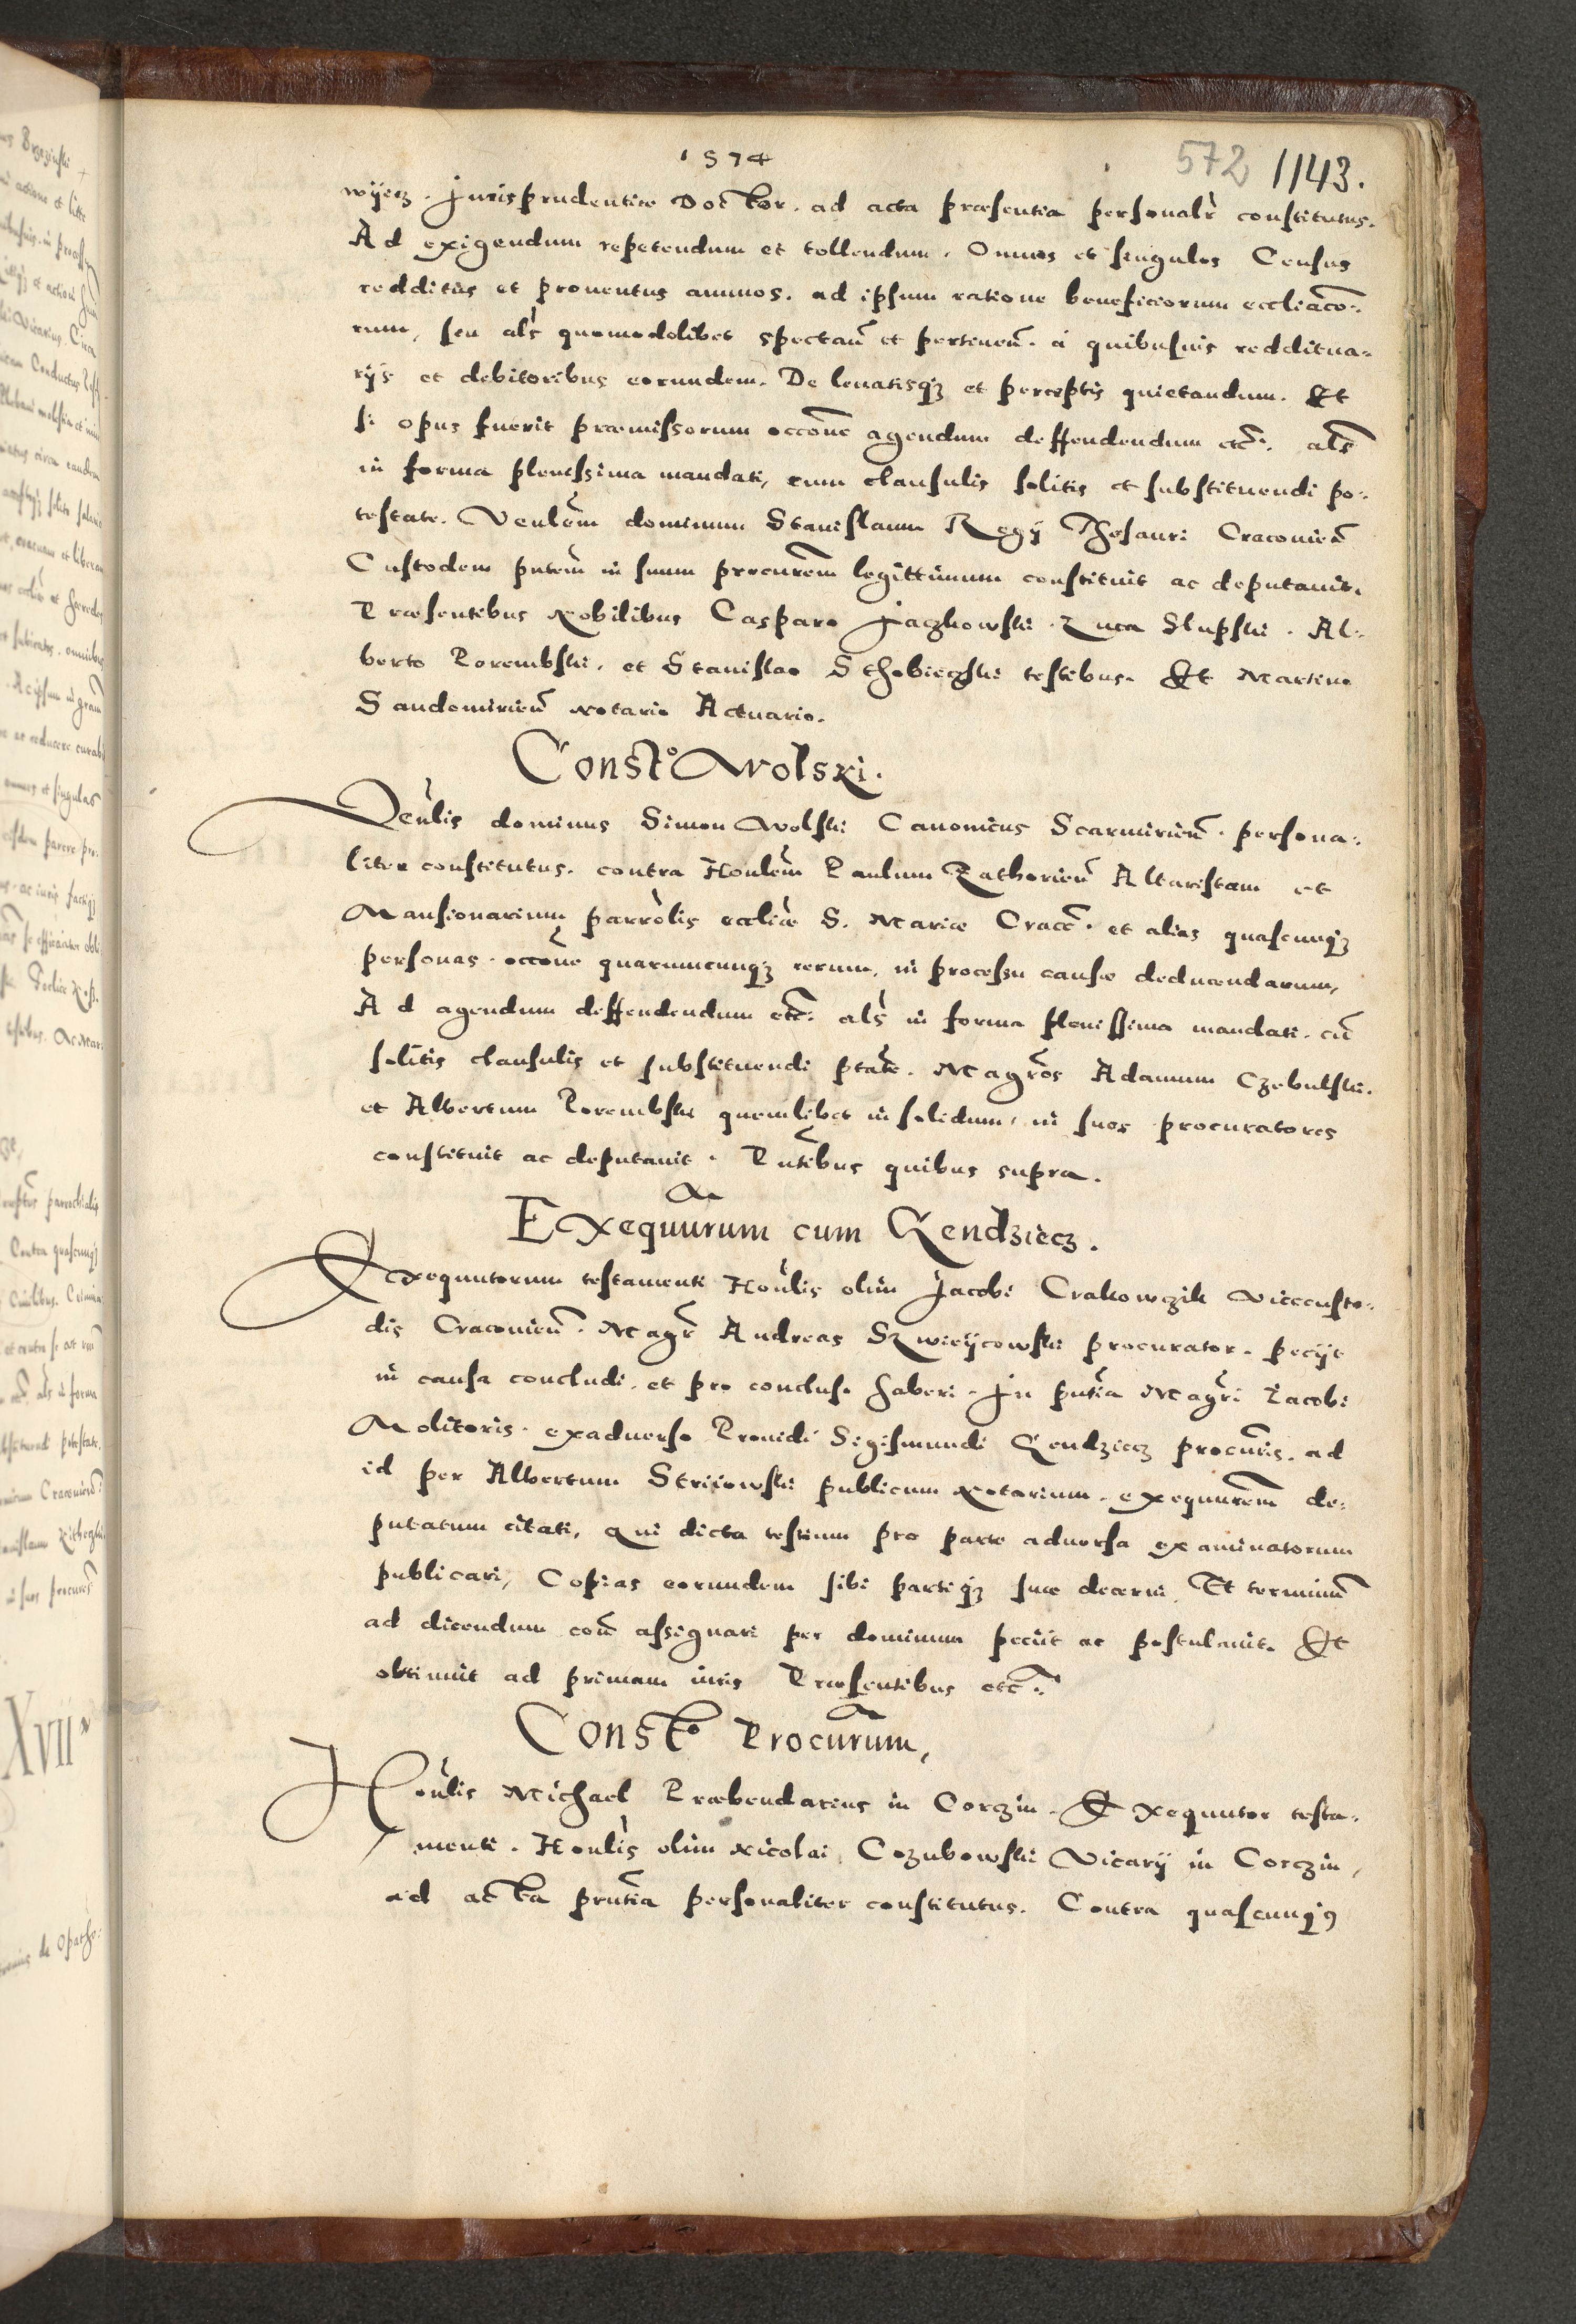 1574
572 1143.
wijecz. Jurisprudentiæ Doctor. ad acta præsentia personalr̃ constitutus.
Ad exigendum repetendum et tollendum. Omnes et singulos Census
redditus et prouentus annuos. ad ipsum ratione beneficiorum eccliaco:
rum, seu als̃ quomodolibet spectañ et pertineñ. a quibusuis reddituа-
rijs et debitoribus eorundem. De leuatisq; et perceptis quietandum. Et
si opus fuerit præmissorum occõne agendum deffendendum etc: als̃
in forma plenissima mandati, cum clausulis solitis et substituendi po:
testate. Venlẽm dominum Stanislaum Regij Thesauri Cracouieñ
Custodem pntẽm in suum procurẽm legittimum constituit ac deputauit.
Præsentibus Nobilibus Casparo Jaczkowski. Luca Slupski. Al:
berto Porembski. et Stanislao Sthobieczski testibus. Et Martino
Sandomirieñ Notario Actuario.
Constᵒ Wolski.
Venlis dominus Simon Wolski Canonicus Scarmirieñ. persona:
liter constitutus. contra Honlẽm Paulum Zathorieñ Altaristam et
Mansionarium parrolis eccliæ S. Mariæ Cracc̃. et alias quascunq;
personas. occõne quarumcunq; rerum, in processu causæ deducendarum,
Ad agendum deffendendum etc: als̃ in forma plenissima mandati. cũ
solitis clausulis et substituendi ptãte. Magr̃os Adamum Czebulski.
et Albertum Porembski quemlibet in solidum, in suos procuratores
constituit ac deputauit. Pntibus quibus supra.
Exequũrum cum Gendziecz.
Exequutorum testamenti Honlis olim Jacobi Crakowczik Vicecusto:
dis Cracouieñ. Magr̃ Andreas Skwieijcowski procurator. pecijt
in causa concludi, et pro concluso haberi. In pñtia Magri Jacobi
Molitoris. exaduerso Prouidi Sigismundi Gendziecz procuris. ad
id per Albertum Striiowski publicum Notarium. exequurẽm de:
putatum citati, Qui dicta testium pro parte aduersa examinatorum
publicari, Copias eorundem sibi partiq; suæ decerni, Et terminũ
ad dicendum coñ assignari per dominum peciit ac postulauit. Et
obtinuit ad primam iuris Præsentibus etc:
Constᵒ Procurũm,
Honlis Michael Præbendarius in Corczin. Exequutor testa:
menti. Honlis olim Nicolai Cozubowski Vicarij in Corczin,
ad acta prñtia personaliter constitutus. Contra quascunq;